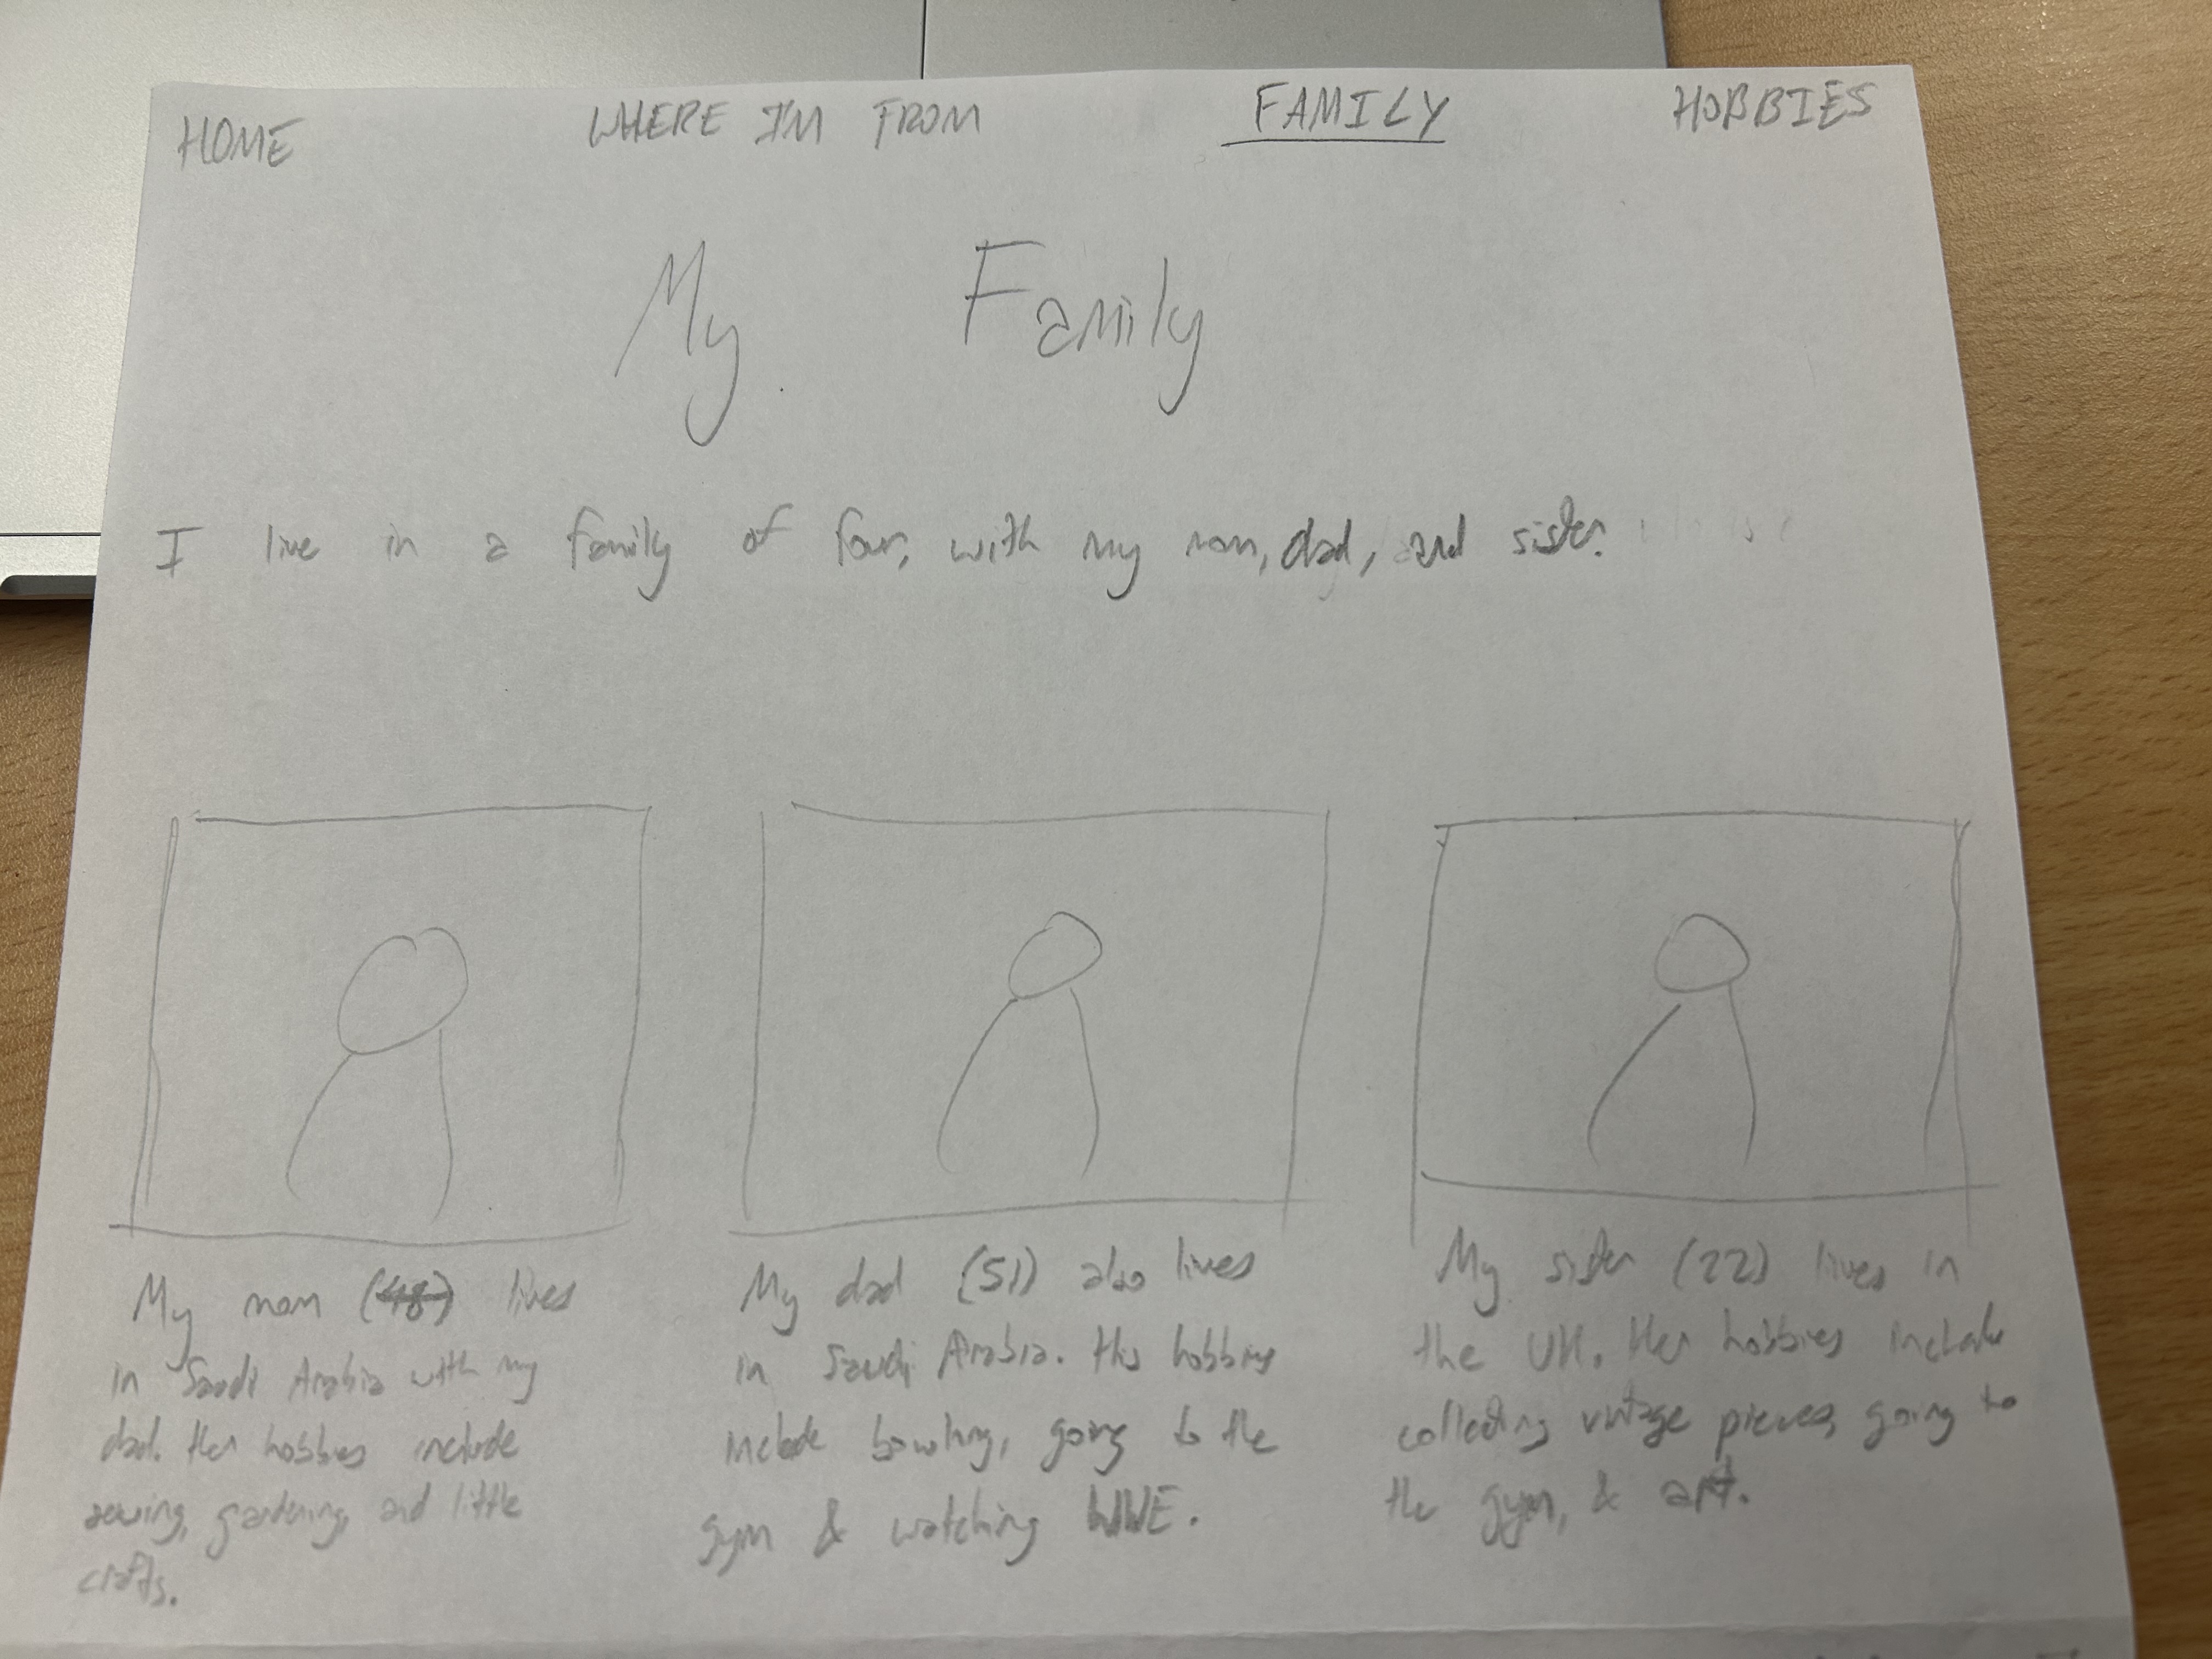 HOME WHERE IM FROM FAMILY HOBBIES
My Family
I live in a family of four, with my mom, dad, and sister.
My mom (48) lives
in Saudi Arabia with my
dad. Her hobbies include
sewing, gardening and little
crafts.
My dad (51) also lives
in Saudi Arabia. His hobbies
include bowling, going to the
gym & watching WWE.
My sister (22) lives in
the UK. Her hobbies include
collecting vintage pieces, going to
the gym, & art.